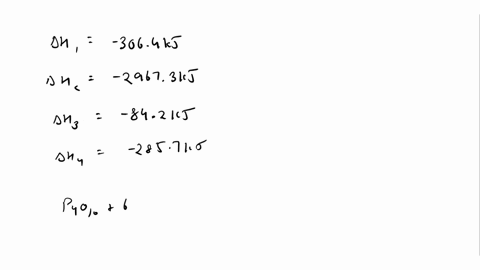 ΔH₁ = -306.4kJ
ΔH₂ = -2967.3kJ
ΔH₃ = -84.2kJ
ΔH₄ = -285.7kJ
P₄O₁₀ + 6